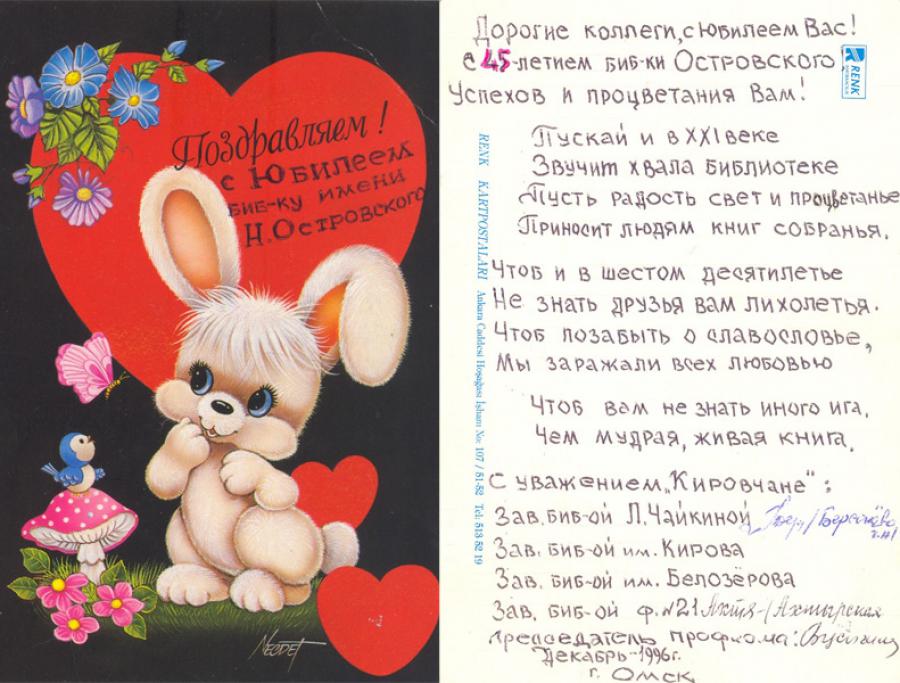 Поздравляем!
с Юбилеем
биб-ку имени
Н.Островского
NECDET
Дорогие коллеги, с юбилеем Вас!
с 45-летием биб-ки Островского,
Успехов и процветания Вам!
RENK
Пускай и в XXI веке
Звучит хвала библиотеке
Пусть радость свет и процветанье
Приносит людям книг собранья.
Чтоб и в шестом десятилетье
Не знать друзья вам лихолетья.
Чтоб позабыть о славословье,
Мы заражали всех любовью
Чтоб вам не знать иного ига,
Чем мудрая, живая книга.
С уважением „Кировчане":
Зав. биб-ой Л.Чайкиной
Зав. биб-ой им. Кирова
Зав. биб-ой им. Белозёрова
Зав. биб-ой ф.№21 /Ахтырская
председатель профкома:
Декабрь-1996г.
г. Омск
RENK KARTPOSTALARI Ankara Caddesi Hoşağası İşhanı No: 107 / 51-52 Tel: 513 52 19